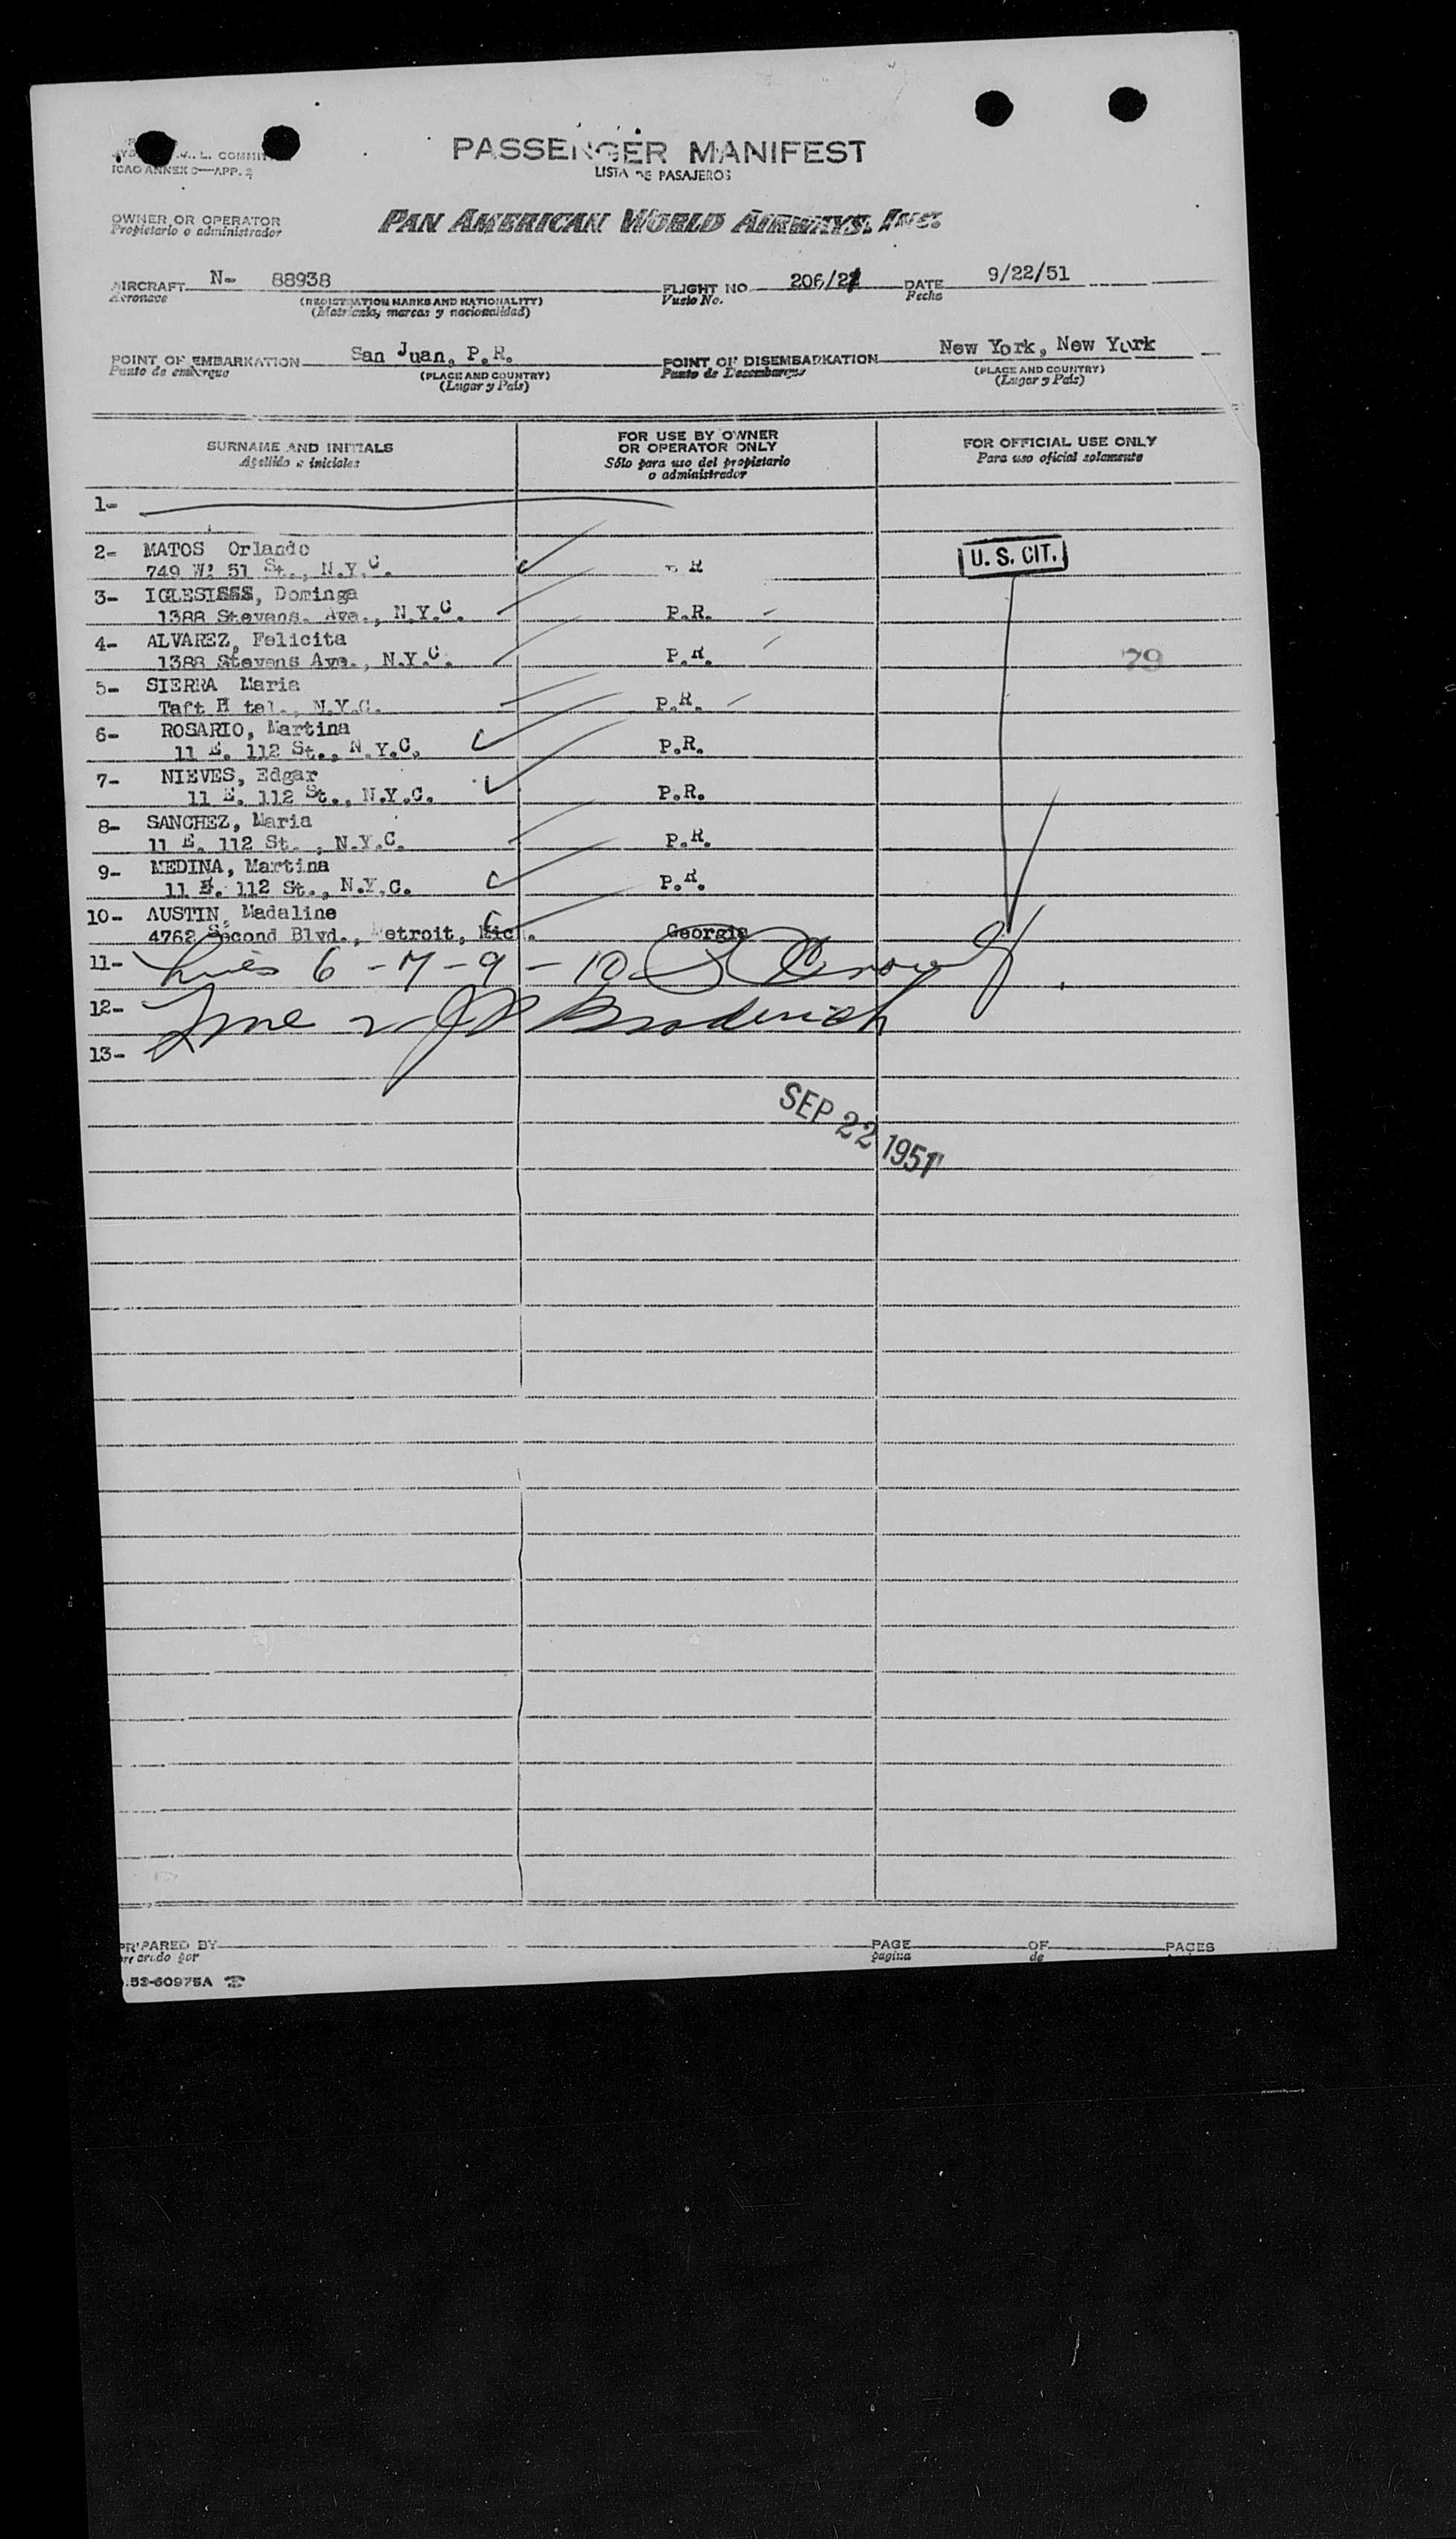 L. COMMIT
ICAO ANNEX 9—APP. 2
PASSENGER MANIFEST
LISTA DE PASAJEROS
OWNER OR OPERATOR
Propietario o administrador
PAN AMERICAN WORLD AIRWAYS, INC.
AIRCRAFT N- 88938
Aeronave
(REGISTRATION MARKS AND NATIONALITY)
(Matrícula, marcas y nacionalidad)
FLIGHT NO 206/21
Vuelo No.
DATE 9/22/51
Fecha
POINT OF EMBARKATION San Juan, P.R.
Punto de embarque
(PLACE AND COUNTRY)
(Lugar y País)
POINT OF DISEMBARKATION New York, New York
Punto de Desembarque
(PLACE AND COUNTRY)
(Lugar y País)
SURNAME AND INITIALS
Apellido e iniciales
FOR USE BY OWNER
OR OPERATOR ONLY
Sólo para uso del propietario
o administrador
FOR OFFICIAL USE ONLY
Para uso oficial solamente
1-
2- MATOS Orlando
749 W. 51 St., N.Y.C. R
U. S. CIT.
3- IGLESISSS, Dominga
1388 Stevens. Ave., N.Y.C. P.R.
4- ALVAREZ, Felicita
1388 Stevens Ave., N.Y.C. P.R.
79
5- SIERRA Maria
Taft H tel., N.Y.C. P.R.
6- ROSARIO, Martina
11 E. 112 St., N.Y.C. P.R.
7- NIEVES, Edgar
11 E. 112 St., N.Y.C. P.R.
8- SANCHEZ, Maria
11 E. 112 St. , N.Y.C. P.R.
9- MEDINA, Martina
11 E. 112 St., N.Y.C. P.R.
10- AUSTIN, Madaline
4762 Second Blvd., etroit, Mic . Georgia
11- Lines 6 - 7 - 9 - 10
12- Line 2 Broderick
13-
SEP 22 1951
PREPARED BY
Preparado por
PAGE OF PAGES
pagina de
.53-60975A